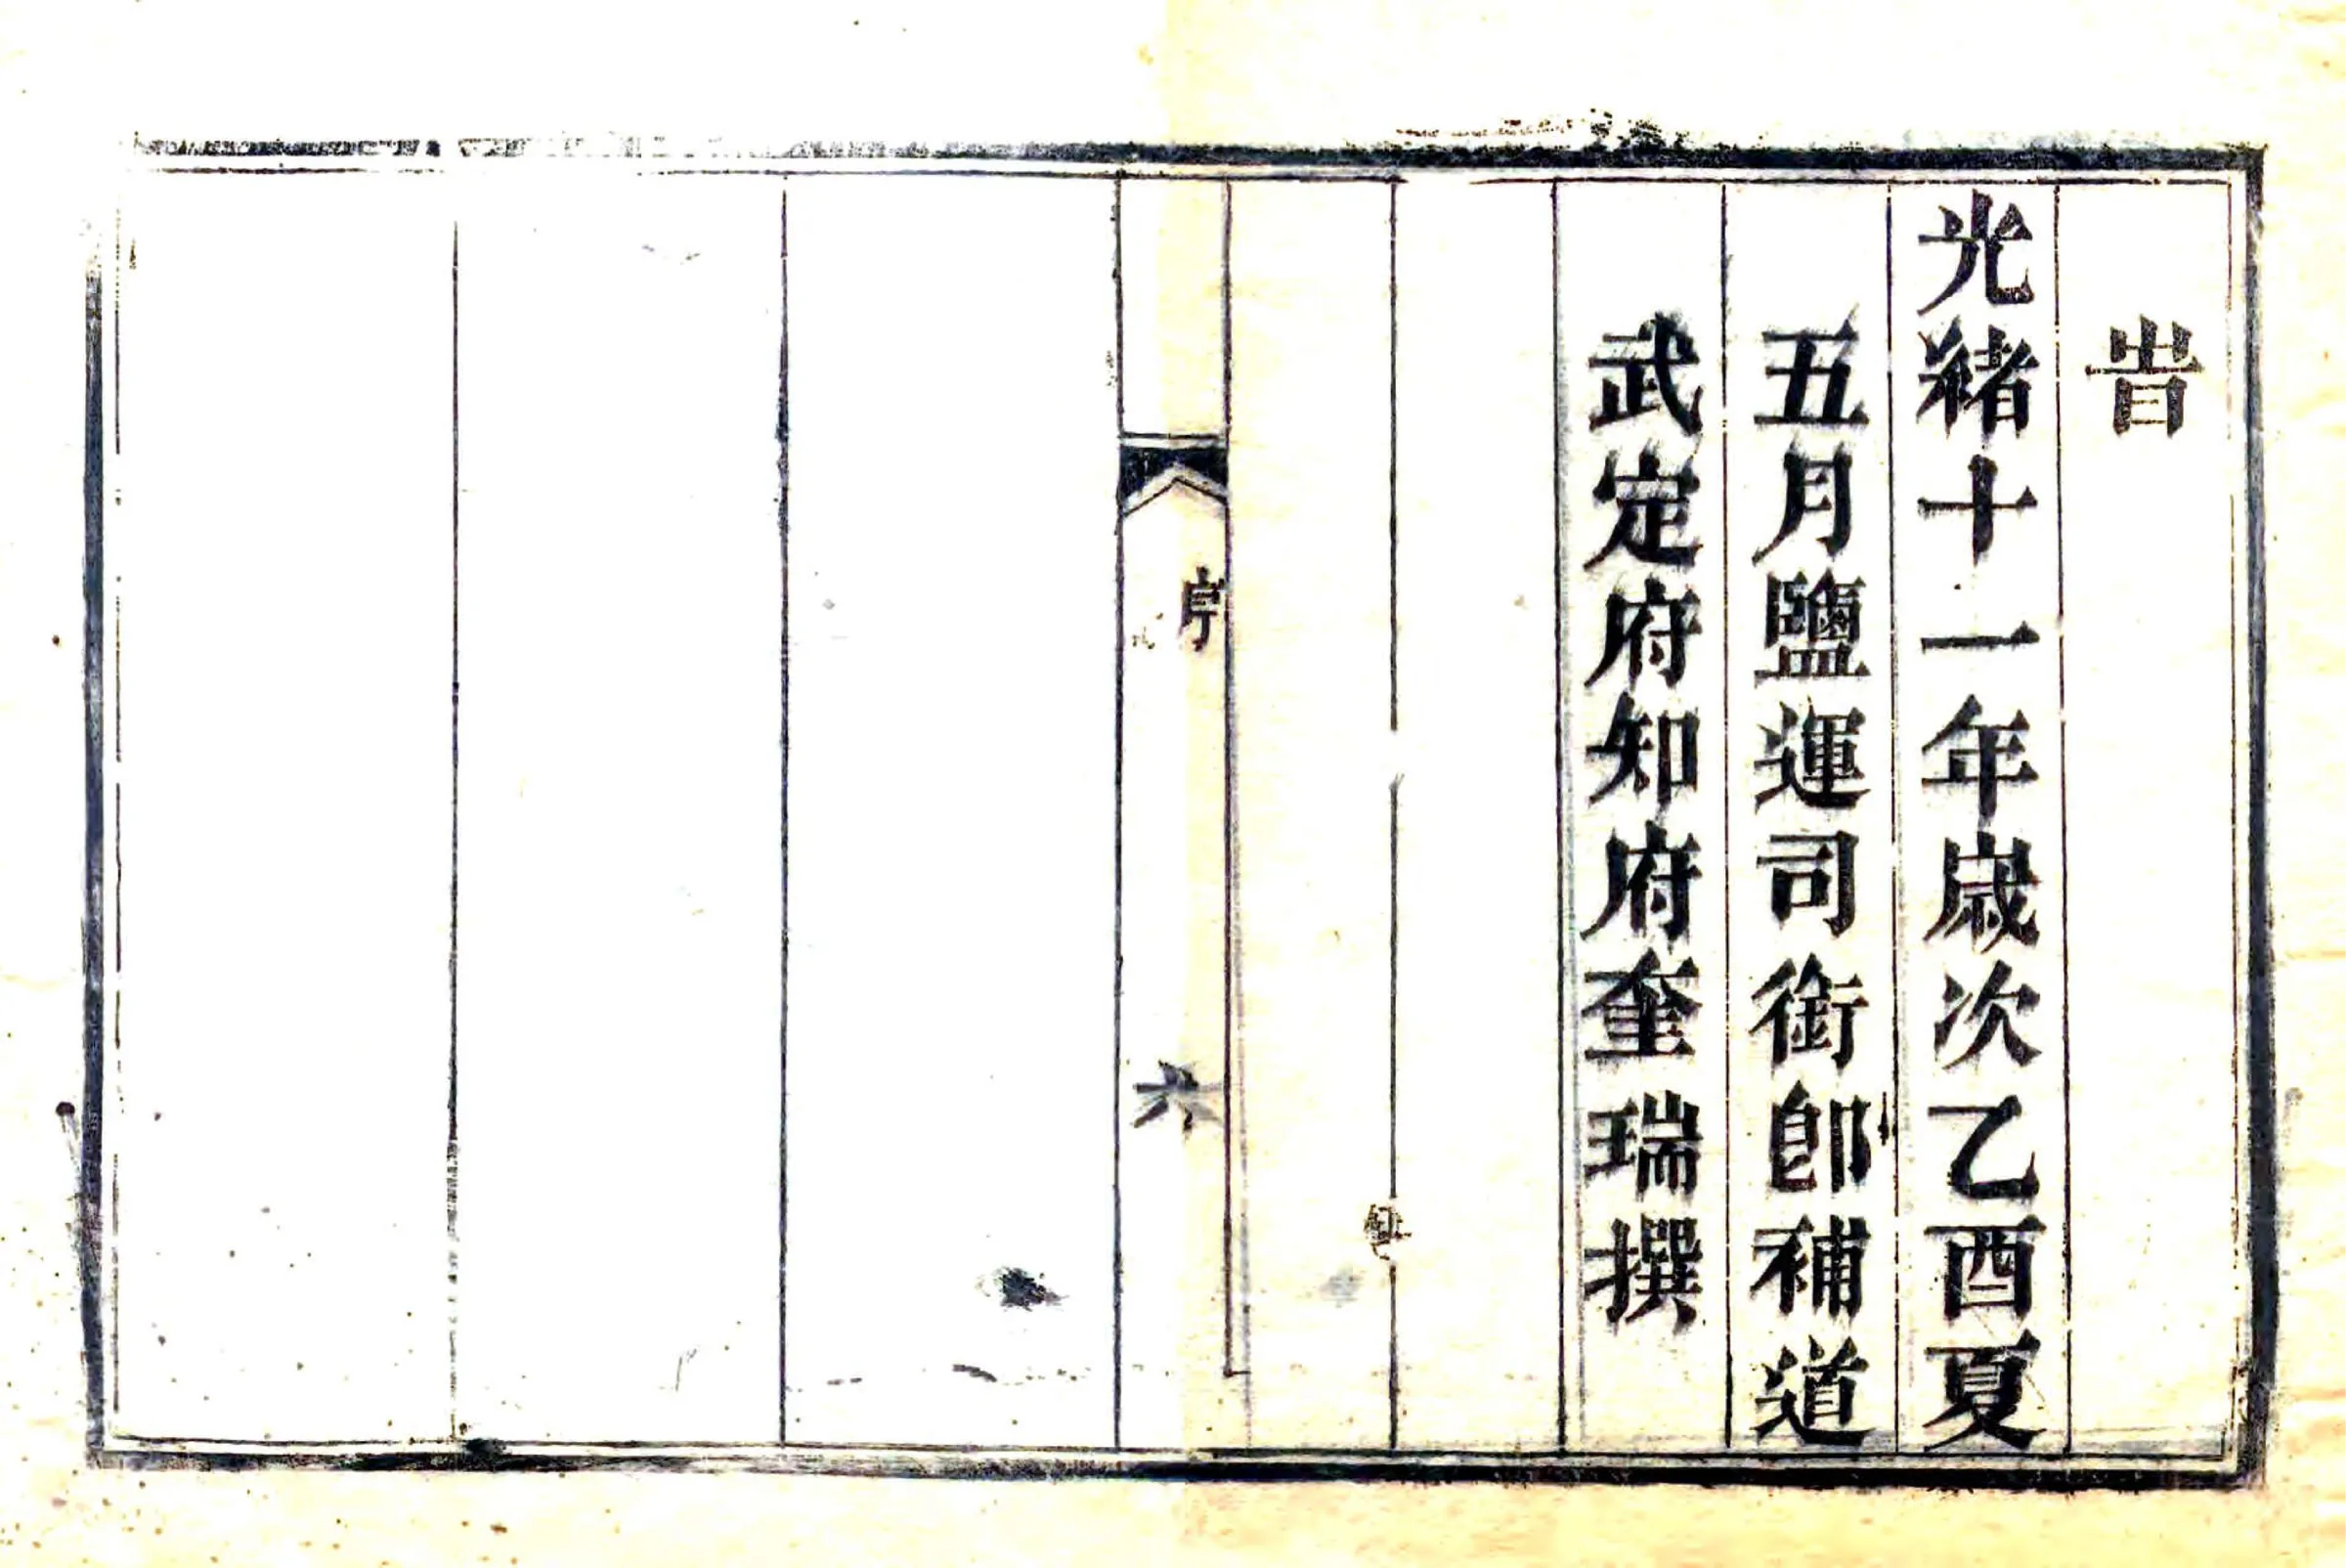 旹
光緒十一年嵗次乙酉夏
五月鹽運司銜卽補道
武定府知府奎瑞撰
序
六